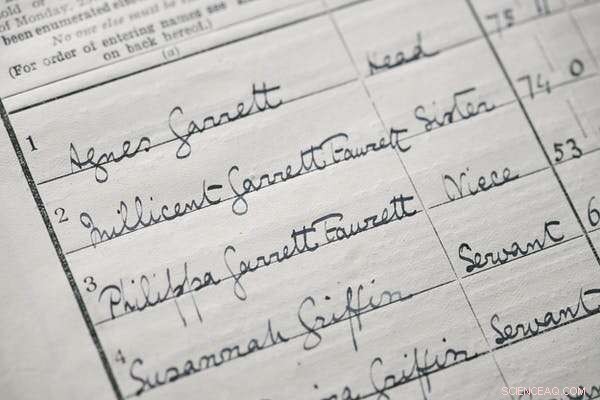 of Monday, 25
been enumerated elsewhere
No one else must be
(For order of entering names see
on back hereof.)
(a)
1 Agnes Garrett Head 75 11
2 Millicent Garrett Fawcett Sister 74 0
3 Philippa Garrett Fawcett Niece 53
4 Susannah Griffin Servant 6
Griffin Servant
SCIENCEAQ.COM